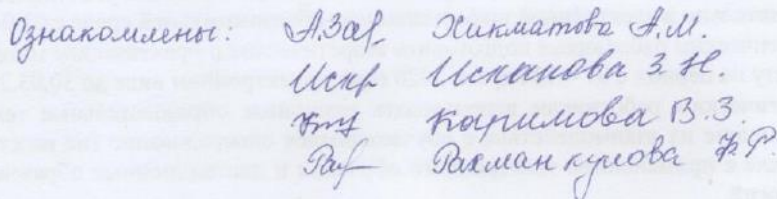 Ознакомлены: Хикматова А.М.
Исканова З.Н.
Каримова В.З.
Рахманкулова Ф.Р.